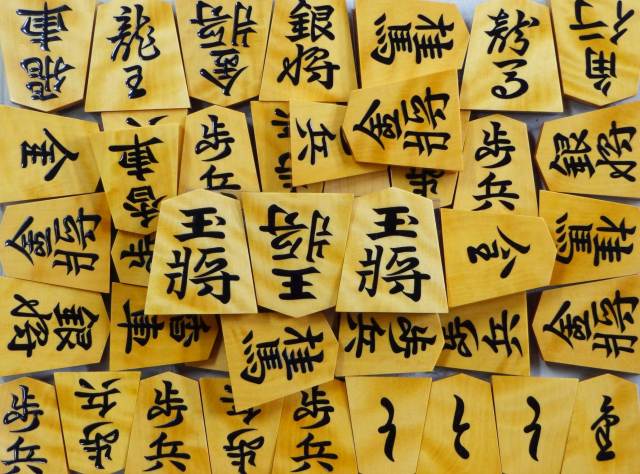 香車
龍王
金将
銀将
桂馬
龍馬
金
香車
歩兵
兵
金将
歩兵
銀将
金将
玉將
王将
玉將
全
桂馬
銀将
香車
桂馬
歩兵
歩兵
金将
歩兵
歩兵
歩兵
歩兵
歩兵
と
と
と